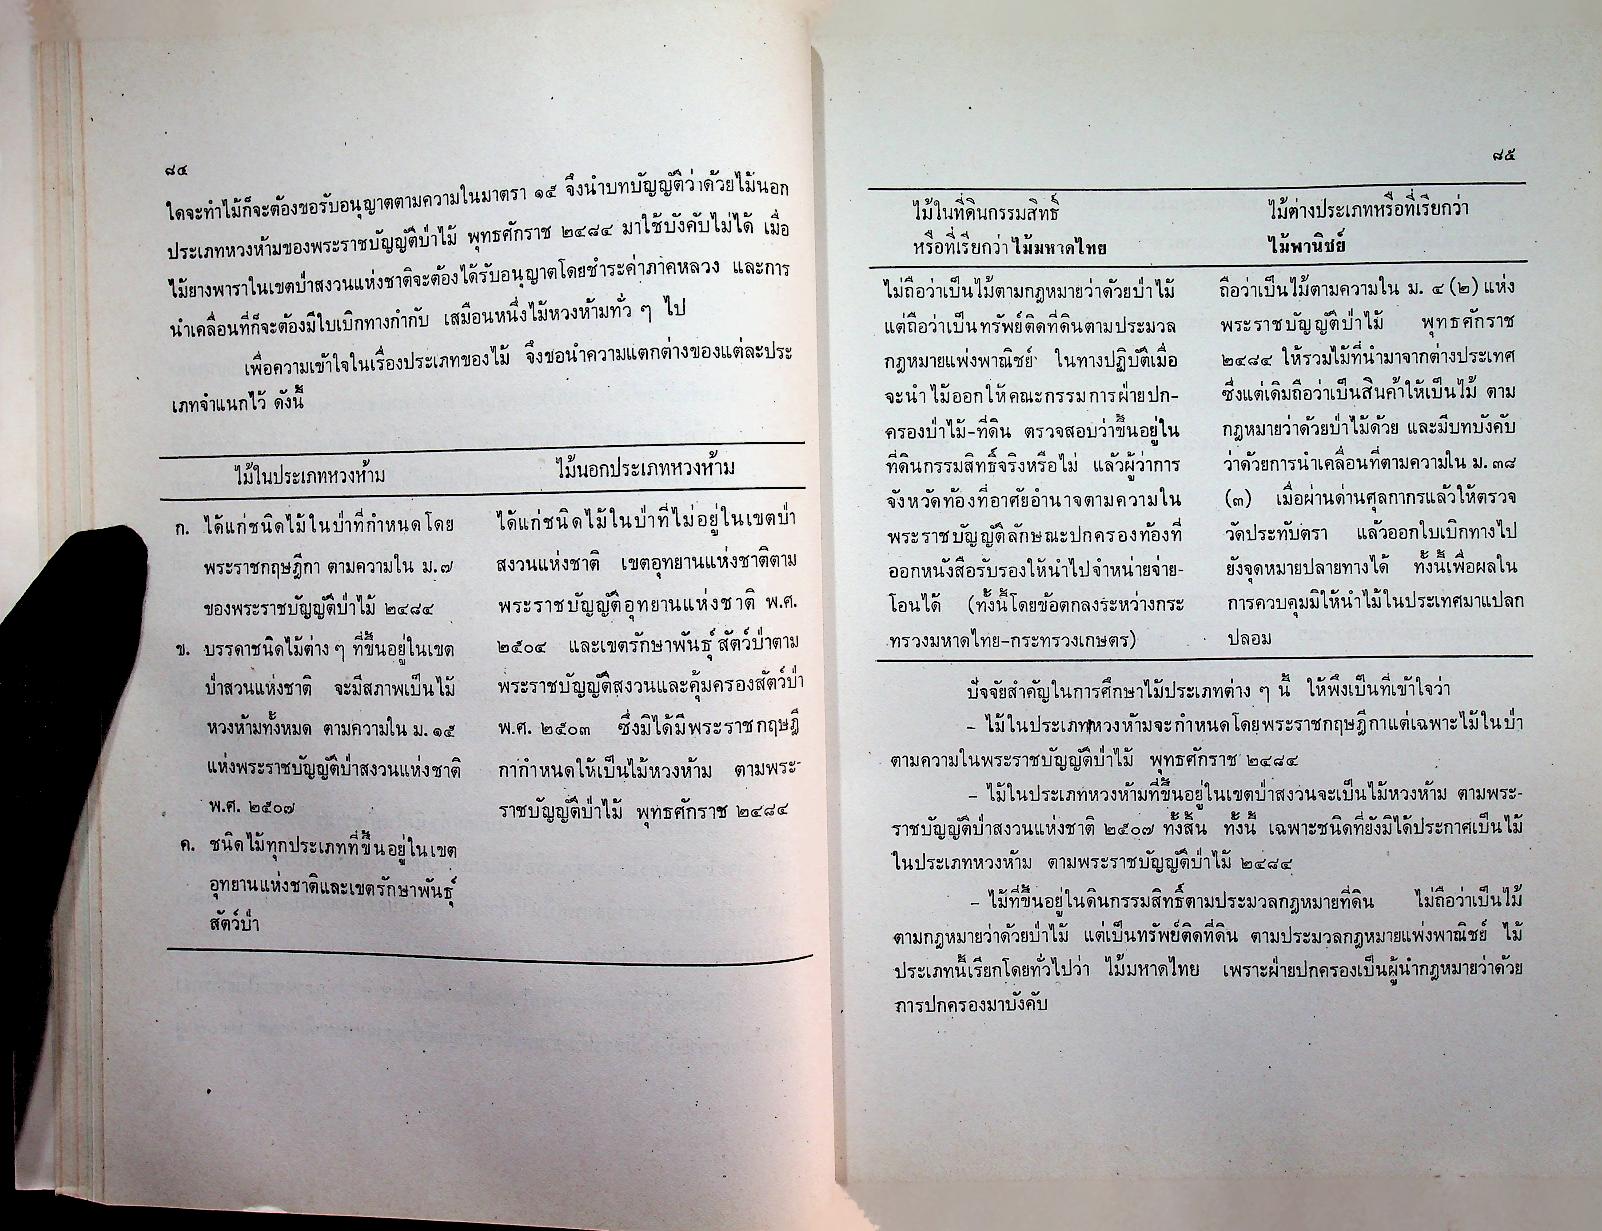 ๘๔
ใดจะทำไม้ก็จะต้องขอรับอนุญาตตามความในมาตรา ๑๕ จึงนำบทบัญญัติว่าด้วยไม้นอก
ประเภทหวงห้ามของพระราชบัญญัติป่าไม้ พุทธศักราช ๒๔๘๔ มาใช้บังคับไม่ได้ เมื่อ
ไม้ยางพาราในเขตป่าสงวนแห่งชาติจะต้องได้รับอนุญาตโดยชำระค่าภาคหลวง และการ
นำเคลื่อนที่ก็จะต้องมีใบเบิกทางกำกับ เสมือนหนึ่งไม้หวงห้ามทั่ว ๆ ไป
เพื่อความเข้าใจในเรื่องประเภทของไม้ จึงขอนำความแตกต่างของแต่ละประ
เภทจำแนกไว้ ดังนี้
ไม้ในประเภทหวงห้าม
ก. ได้แก่ชนิดไม้ในป่าที่กำหนดโดย
พระราชกฤษฎีกา ตามความใน ม.๗
ของพระราชบัญญัติป่าไม้ ๒๔๘๔
ข. บรรดาชนิดไม้ต่าง ๆ ที่ขึ้นอยู่ในเขต
ป่าสวนแห่งชาติ จะมีสภาพเป็นไม้
หวงห้ามทั้งหมด ตามความใน ม.๑๕
แห่งพระราชบัญญัติป่าสงวนแห่งชาติ
พ.ศ. ๒๕๐๗
ค. ชนิดไม้ทุกประเภทที่ขึ้นอยู่ในเขต
อุทยานแห่งชาติและเขตรักษาพันธุ์
สัตว์ป่า
ไม้นอกประเภทหวงห้าม
ได้แก่ชนิดไม้ในป่าที่ไม่อยู่ในเขตป่า
สงวนแห่งชาติ เขตอุทยานแห่งชาติตาม
พระราชบัญญัติอุทยานแห่งชาติ พ.ศ.
๒๕๐๔ และเขตรักษาพันธุ์สัตว์ป่าตาม
พระราชบัญญัติสงวนและคุ้มครองสัตว์ป่า
พ.ศ. ๒๕๐๓ ซึ่งมิได้มีพระราชกฤษฎี
กากำหนดให้เป็นไม้หวงห้าม ตามพระ-
ราชบัญญัติป่าไม้ พุทธศักราช ๒๔๘๔
๘๕
ไม้ในที่ดินกรรมสิทธิ์
หรือที่เรียกว่า ไม้มหาดไทย
ไม่ถือว่าเป็นไม้ตามกฎหมายว่าด้วยป่าไม้
แต่ถือว่าเป็นทรัพย์ติดที่ดินตามประมวล
กฎหมายแพ่งพาณิชย์ ในทางปฏิบัติเมื่อ
จะนำไม้ออกให้คณะกรรมการฝ่ายปก-
ครองป่าไม้-ที่ดิน ตรวจสอบว่าขึ้นอยู่ใน
ที่ดินกรรมสิทธิ์จริงหรือไม่ แล้วผู้ว่าการ
จังหวัดท้องที่อาศัยอำนาจตามความใน
พระราชบัญญัติลักษณะปกครองท้องที่
ออกหนังสือรับรองให้นำไปจำหน่ายจ่าย-
โอนได้ (ทั้งนี้โดยข้อตกลงระหว่างกระ
ทรวงมหาดไทย-กระทรวงเกษตร)
ไม้ต่างประเภทหรือที่เรียกว่า
ไม้พานิชย์
ถือว่าเป็นไม้ตามความใน ม. ๔ (๒) แห่ง
พระราชบัญญัติป่าไม้ พุทธศักราช
๒๔๘๔ ให้รวมไม้ที่นำมาจากต่างประเทศ
ซึ่งแต่เดิมถือว่าเป็นสินค้าให้เป็นไม้ ตาม
กฎหมายว่าด้วยป่าไม้ด้วย และมีบทบังคับ
ว่าด้วยการนำเคลื่อนที่ตามความใน ม. ๓๘
(๓) เมื่อผ่านด่านศุลกากรแล้วให้ตรวจ
วัดประทับตรา แล้วออกใบเบิกทางไป
ยังจุดหมายปลายทางได้ ทั้งนี้เพื่อผลใน
การควบคุมมิให้นำไม้ในประเทศมาแปลก
ปลอม
ปัจจัยสำคัญในการศึกษาไม้ประเภทต่าง ๆ นี้ ให้พึงเป็นที่เข้าใจว่า
- ไม้ในประเภทหวงห้ามจะกำหนดโดยพระราชกฤษฎีกาแต่เฉพาะไม้ในป่า
ตามความในพระราชบัญญัติป่าไม้ พุทธศักราช ๒๔๘๔
- ไม้ในประเภทหวงห้ามที่ขึ้นอยู่ในเขตป่าสงวนจะเป็นไม้หวงห้าม ตามพระ-
ราชบัญญัติป่าสงวนแห่งชาติ ๒๕๐๗ ทั้งสิ้น ทั้งนี้ เฉพาะชนิดที่ยังมิได้ประกาศเป็นไม้
ในประเภทหวงห้าม ตามพระราชบัญญัติป่าไม้ ๒๔๘๔
- ไม้ที่ขึ้นอยู่ในดินกรรมสิทธิ์ตามประมวลกฎหมายที่ดิน ไม่ถือว่าเป็นไม้
ตามกฎหมายว่าด้วยป่าไม้ แต่เป็นทรัพย์ติดที่ดิน ตามประมวลกฎหมายแพ่งพาณิชย์ ไม้
ประเภทนี้เรียกโดยทั่วไปว่า ไม้มหาดไทย เพราะฝ่ายปกครองเป็นผู้นำกฎหมายว่าด้วย
การปกครองมาบังคับ